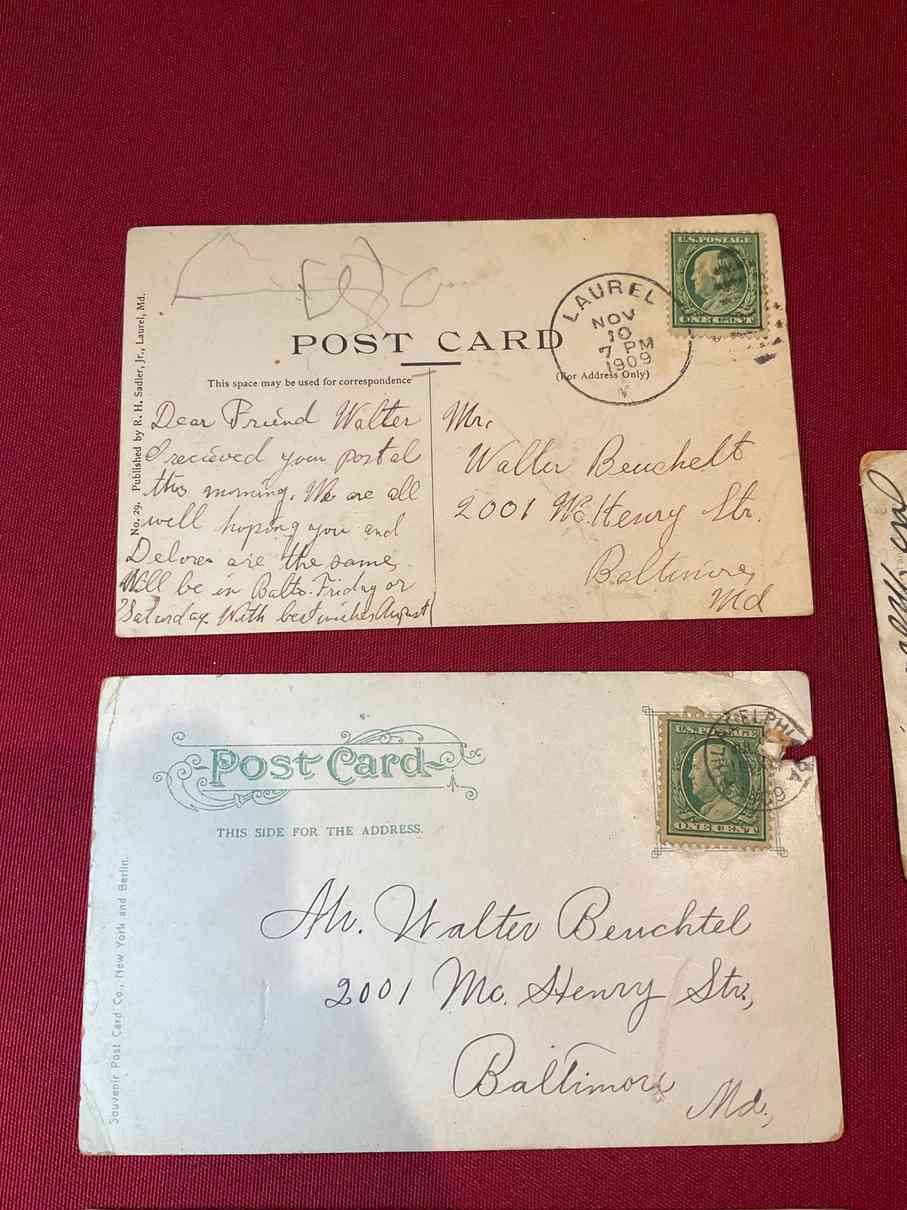 U.S. POSTAGE
ONE CENT
LAUREL
NOV
10
7 PM
1909
POST CARD
This space may be used for correspondence
(For Address Only)
No. 29. Published by R. H. Sadler, Jr., Laurel, Md.
Dear Friend Walter
I recieved your postal
this morning. We are all
well hoping you and
Delores are the same
Will be in Balto. Friday or
Saturday. With best wishes August
Mr.
Walter Beuchelt
2001 Mc.Henry Str.
Baltimore,
Md
Post Card
THIS SIDE FOR THE ADDRESS.
U.S. POSTAGE
ONE CENT
Souvenir Post Card Co., New York and Berlin.
Mr. Walter Beuchtel
2001 Mc. Henry Str.,
Baltimore
Md.,